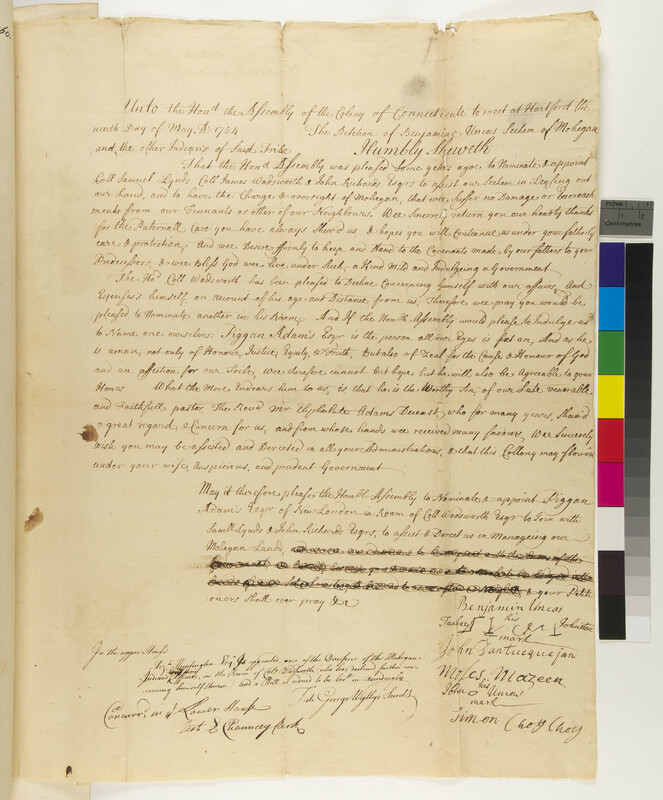 Unto the Hond the Assembly of the Colony of Connecticute to meet at Hartford the
ninth Day of May AD 1754 The Petition of Benjamin Uncas Sechem of Mohegan
and the other Indians of Said Tribe Humbly Sheweth
That the Hond Assembly was pleased some years ago to Nominate & appoint
Coll Samuel Lynds Coll James Wadsworth & John Richards Esqrs to assist our Sechem in Leasing out
our land, and to have the Charge & oversight of Mohegan, that wee suffer no Damage or encroach
ments from our Tennants or other of our Neighbours. Wee Sincerely return you our hearty thanks
for the Paternall Care you have always Shew'd us & hopes you will Contenue us under your fatherly
care & protection; And wee Desire firmly to keep and Stand to the Covenants made by our fathers to your
Predecessors, & wee Bless God wee live under Such a Kind Mild and Indulgeing a Government
The Hol Coll Wadsworth has been pleased to Decline Concerning himself with our affairs, And
Excuses himself, on account of his age and Distance from us, Therefore wee pray you would be
pleased to Nominate another in his Room. And If the Honble Assembly would please to Indulge us
to Name one ourselves: Piggan Adams Esqr is the person all our Eyes is fixt on, And as he
is a man, not only of Honour, Justice, Equity, & Truth, But also of Zeal for the Cause & Honour of God
and an affection for our Tribe, Wee therefore cannot but hope but he will also be Agreeable to your
Honors What the More Endears him to us, is, that he is the Worthy Son, of our Late venerable
and Faithfull pastor The Revd Mr Eliphalet Adams Deceast, who for many years, Shew'd
a great regard & Concern for us, and from whose hands wee received many favours, Wee Sincerely
wish you may be assisted and Derected in all your Administrations, & that this Collony may flourish
under your wise, Auspicious, and prudent Government
May it therefore please the Honble Assembly to Nominate & appoint Piggan
Adams Esqr of New London in Room of Coll Wadsworth Esqr to Join with
Samll Lynds & John Richards Esqrs, to assist & Derect us in Manageing our
Mohegan Lands,
& your Petiti
oners Shall ever pray &c
Benjamin Uncas
Zachary his Johnson
mark
John Tantucquejan
Moses Mazeen
John his Uncus
mark
Simon Choy Choy
In the upper House
Huntington Esqr is appointed one of the Overseers of the Mohegan
Indians in the Room of Colo Wadsworth who has declined further con
cerning himself therein and a Bill is ordered to be brot in accordingly
Test George Wyllys Secrety
Concurrd in ye Lower House
Test E Chauncey Clerk